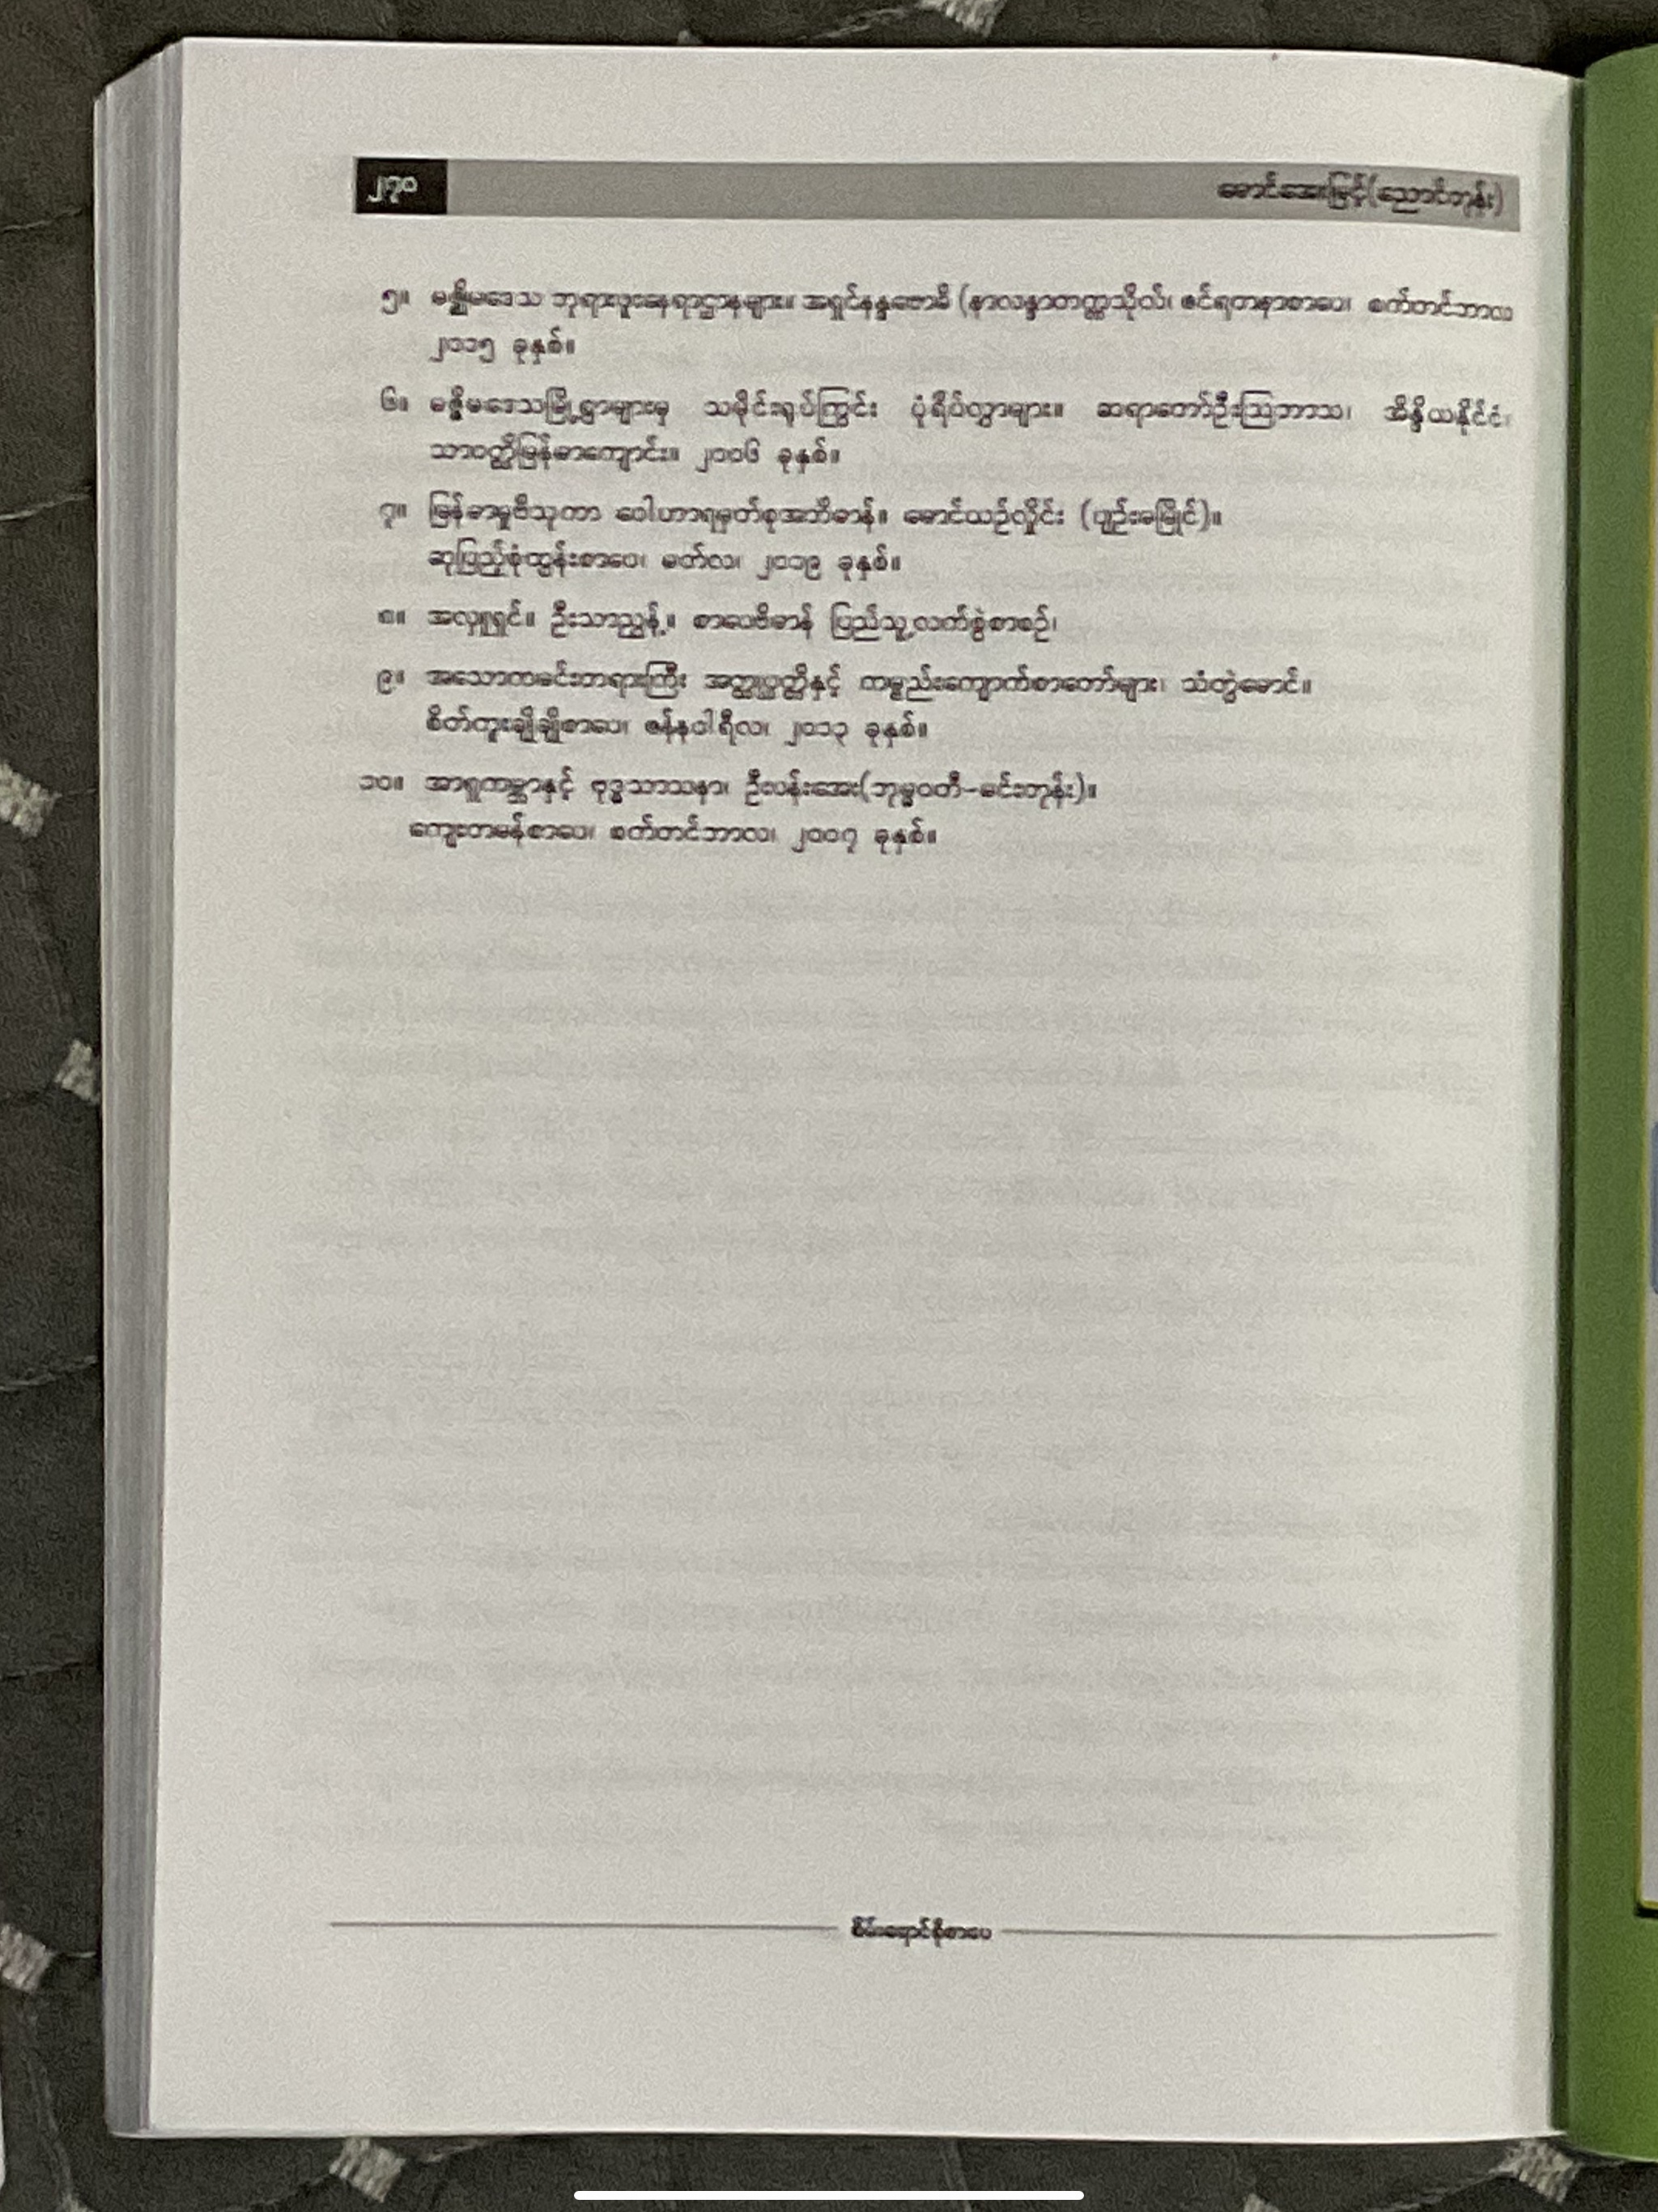 ၂၇၀ မောင်အေးမြင့်(ညောင်တုန်း)
၅။ မဇ္ဈိမဒေသ ဘုရားဖူးနေရာဌာနများ။ အရှင်နန္ဒဗောဓိ (နာလန္ဒာတက္ကသိုလ်၊ ဇင်ရတနာစာပေ၊ စက်တင်ဘာလ
၂၀၁၅ ခုနှစ်။
၆။ မဇ္ဈိမဒေသမြို့ရွာများမှ သမိုင်းရုပ်ကြွင်း ပုံရိပ်လွှာများ။ ဆရာတော်ဦးဩဘာသ၊ အိန္ဒိယနိုင်ငံ၊
သာဝတ္ထိမြန်မာကျောင်း။ ၂၀၀၆ ခုနှစ်။
၇။ မြန်မာမှုဗိသုကာ ဝေါဟာရမှတ်စုအဘိဓာန်။ မောင်ယဉ်လှိုင်း (ပျဉ်းခမြိုင်)။
ဆုပြည့်စုံထွန်းစာပေ၊ မတ်လ၊ ၂၀၁၉ ခုနှစ်။
၈။ အလှူရှင်။ ဦးသာညွန့်။ စာပေဗိမာန် ပြည်သူ့လက်စွဲစာစဉ်၊
၉။ အသောကမင်းတရားကြီး အတ္ထုပ္ပတ္တိနှင့် ကမ္ပည်းကျောက်စာတော်များ၊ သံတွဲမောင်။
စိတ်ကူးချိုချိုစာပေ၊ ဇန်နဝါရီလ၊ ၂၀၁၃ ခုနှစ်။
၁၀။ အာရှကမ္ဘာနှင့် ဗုဒ္ဓသာသနာ၊ ဦးပန်းအေး(ဘုမ္မဝတီ-မင်းဘုန်း)။
ကျေးတမန်စာပေ၊ စက်တင်ဘာလ၊ ၂၀၀၇ ခုနှစ်။
စိမ်းရောင်စိုစာပေ